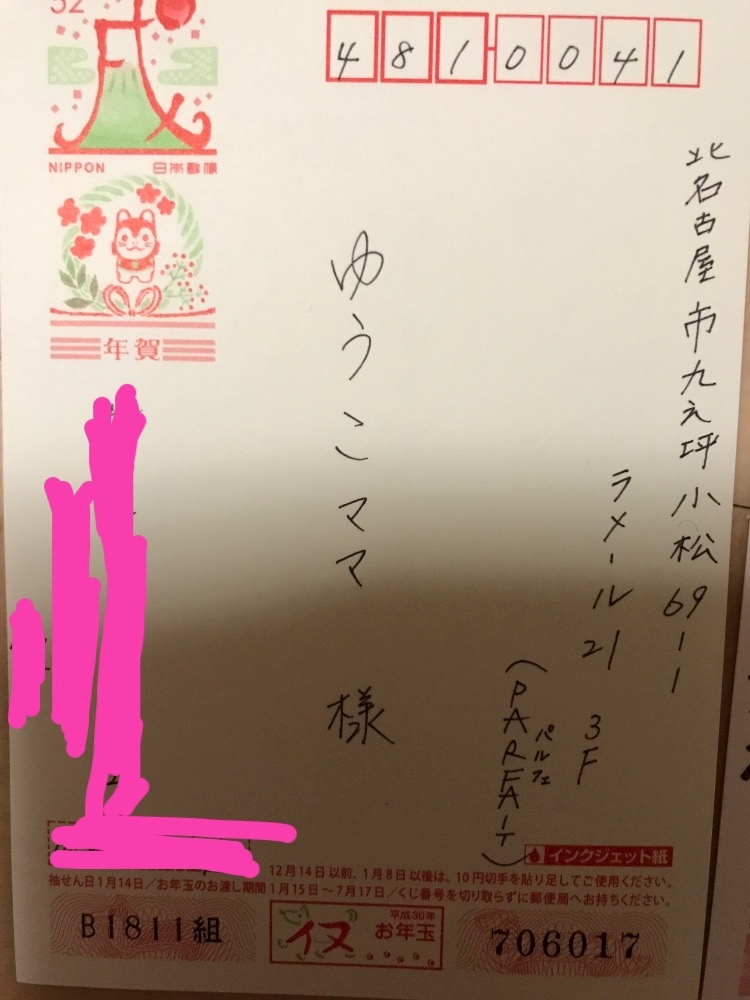 52
戌
NIPPON 日本郵便
年賀
4810041
北名古屋市九之坪小松69-1
ラメール21 3F
(PARFAIT)
パルフェ
ゆうこママ 様
インクジェット紙
12月14日以前、1月8日以後は、10円切手を貼り足してご使用ください。
抽せん日1月14日/お年玉のお渡し期間1月15日~7月17日/くじ番号を切り取らずに郵便局へお持ちください。
B1811組
イヌ
平成30年
お年玉
706017